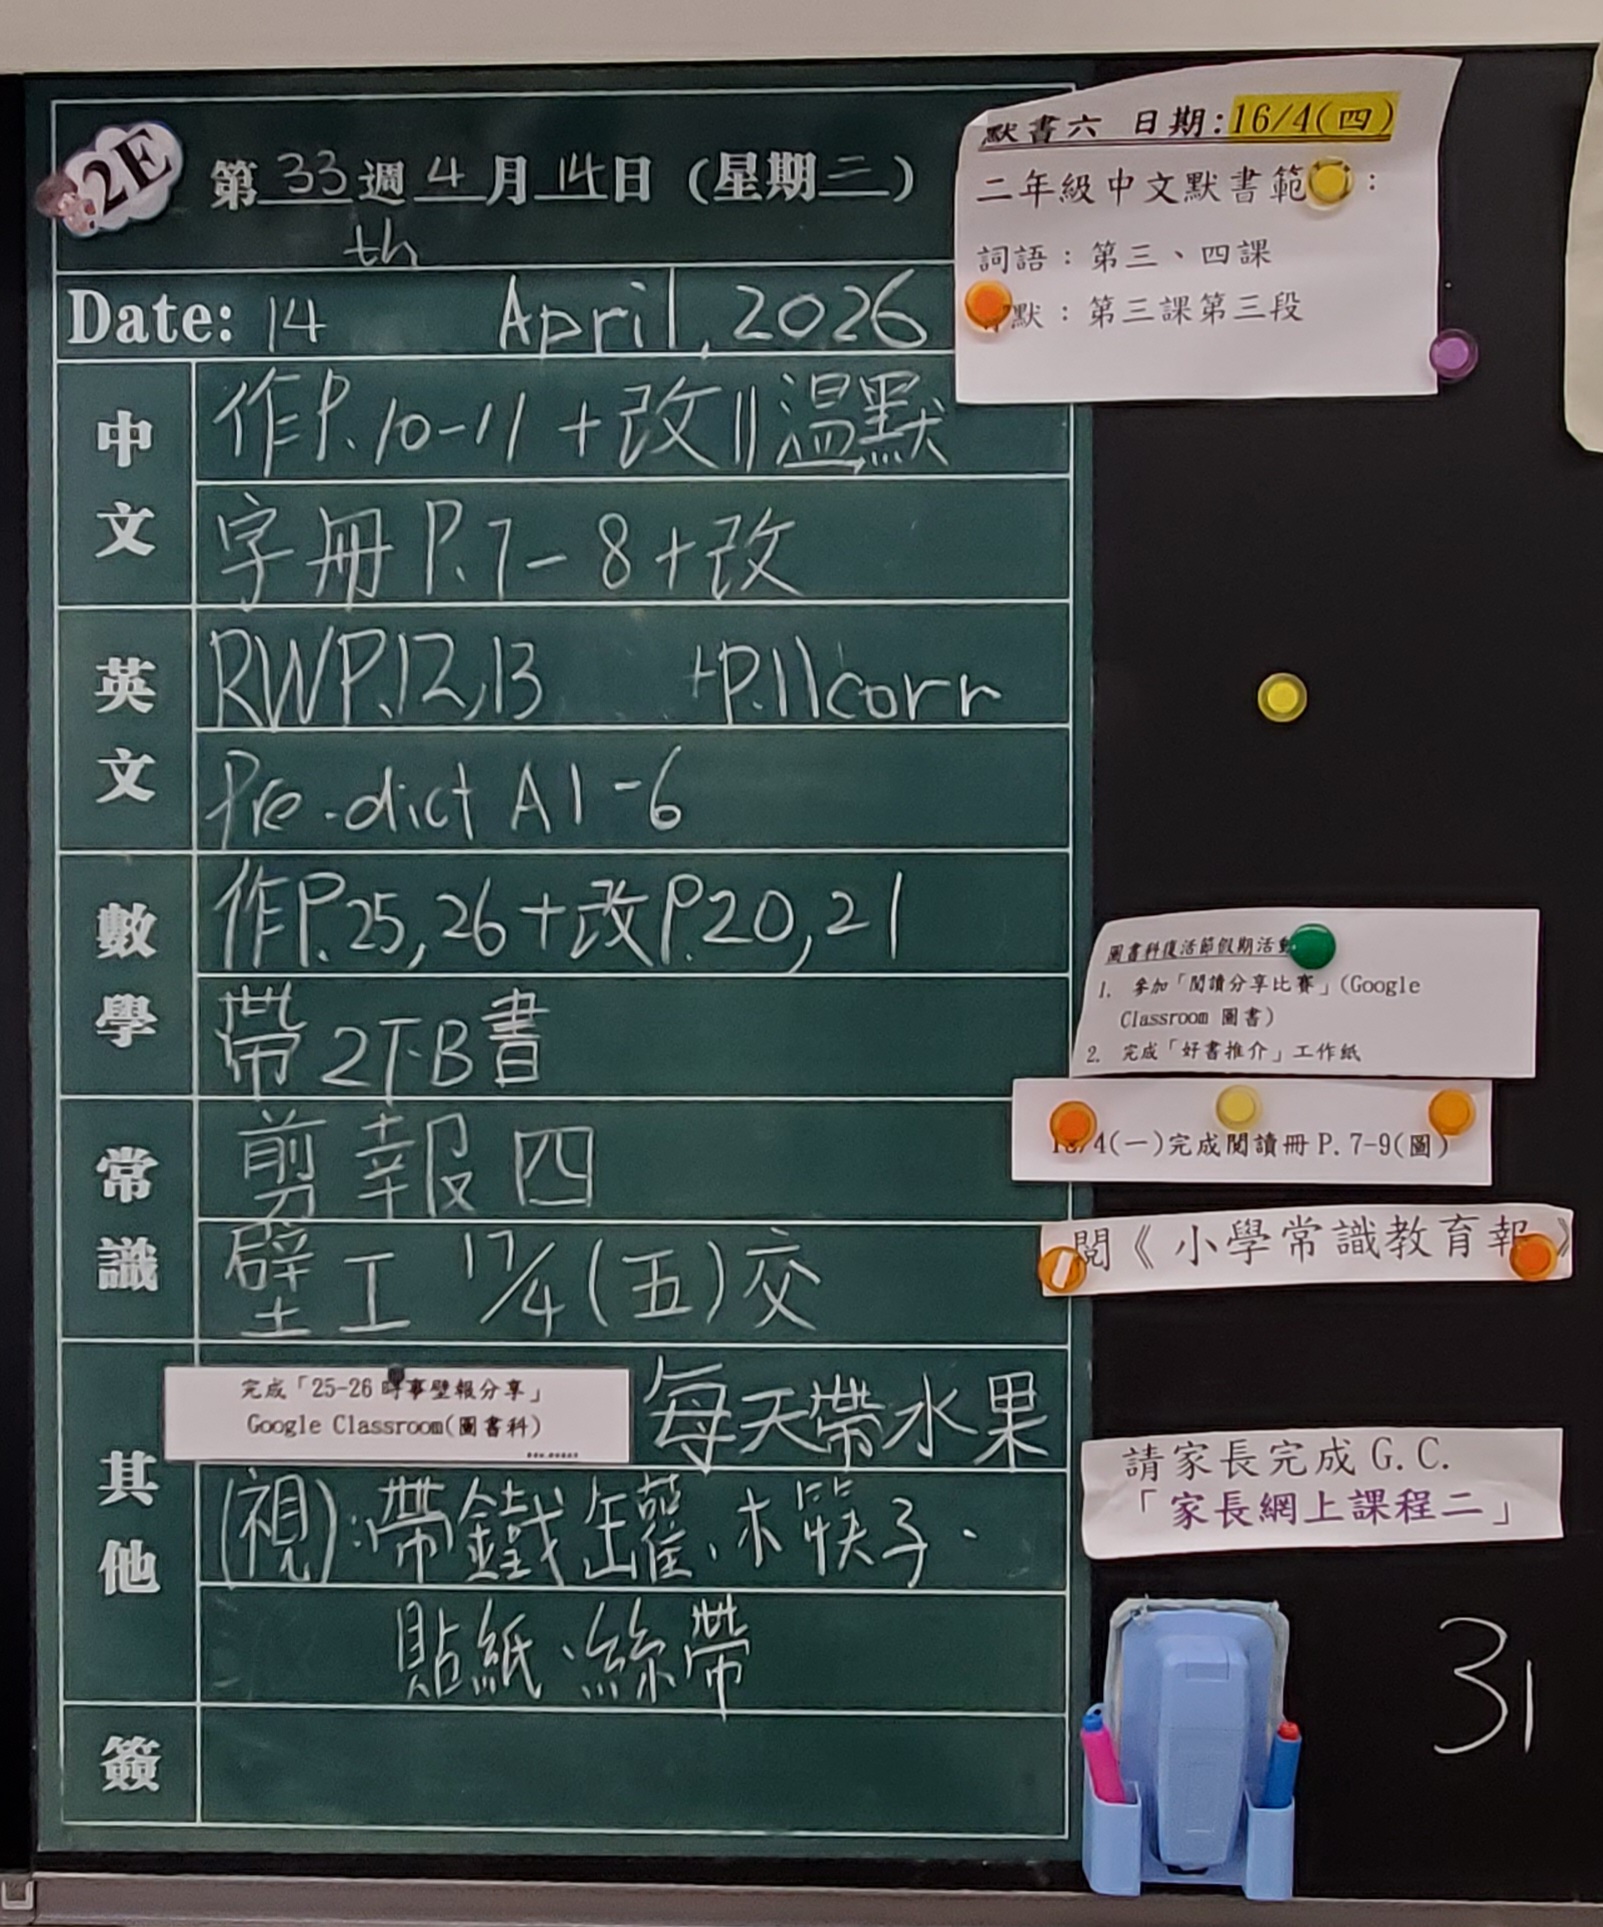 2E
第33週4月14日(星期二)
th
Date: 14 April, 2026
中文
作P.10-11+改‖溫默
字冊P.7-8+改
英文
RWP.12,13 +P.11corr
Pre-dict A1-6
數學
作P.25,26+改P.20,21
帶2下B書
常識
剪報四
壁工 17/4(五)交
其他
完成「25-26時事壁報分享」
Google Classroom(圖書科)
每天帶水果
(視):帶鐵罐、木筷子、
貼紙、絲帶
簽
默書六 日期:16/4(四)
二年級中文默書範:
詞語:第三、四課
默:第三課第三段
圖書科復活節假期活動
1. 參加「閱讀分享比賽」(Google
Classroom 圖書)
2. 完成「好書推介」工作紙
/4(一)完成閱讀冊 P.7-9(圖)
閱《小學常識教育報》
請家長完成 G.C.
「家長網上課程二」
31